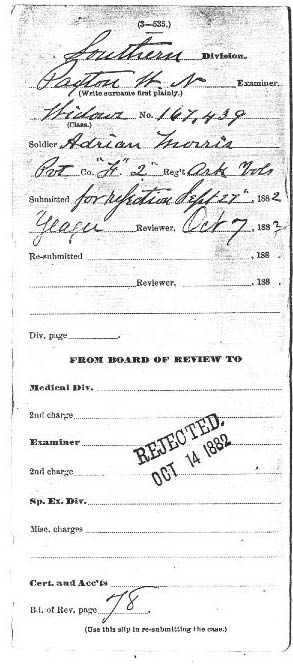 (3—535.)
Southern Division.
Payton W. N Examiner.
(Write surname first plainly.)
Widows No. 167,439
(Class.)
Soldier Adrian Morris
Pvt Co. "K" 2" Reg't Ark Vols
Submitted for rejection Sept 27", 1882
Yeager Reviewer, Oct 7, 1882
Re-submitted , 188 .
Reviewer, , 188 .
Div. page .
FROM BOARD OF REVIEW TO
Medical Div.
2nd charge
Examiner
REJECTED.
OCT 14 1882
2nd charge
Sp. Ex. Div.
Misc. charges
Cert. and Acc'ts
Bd. of Rev. page 78.
(Use this slip in re-submitting the case.)